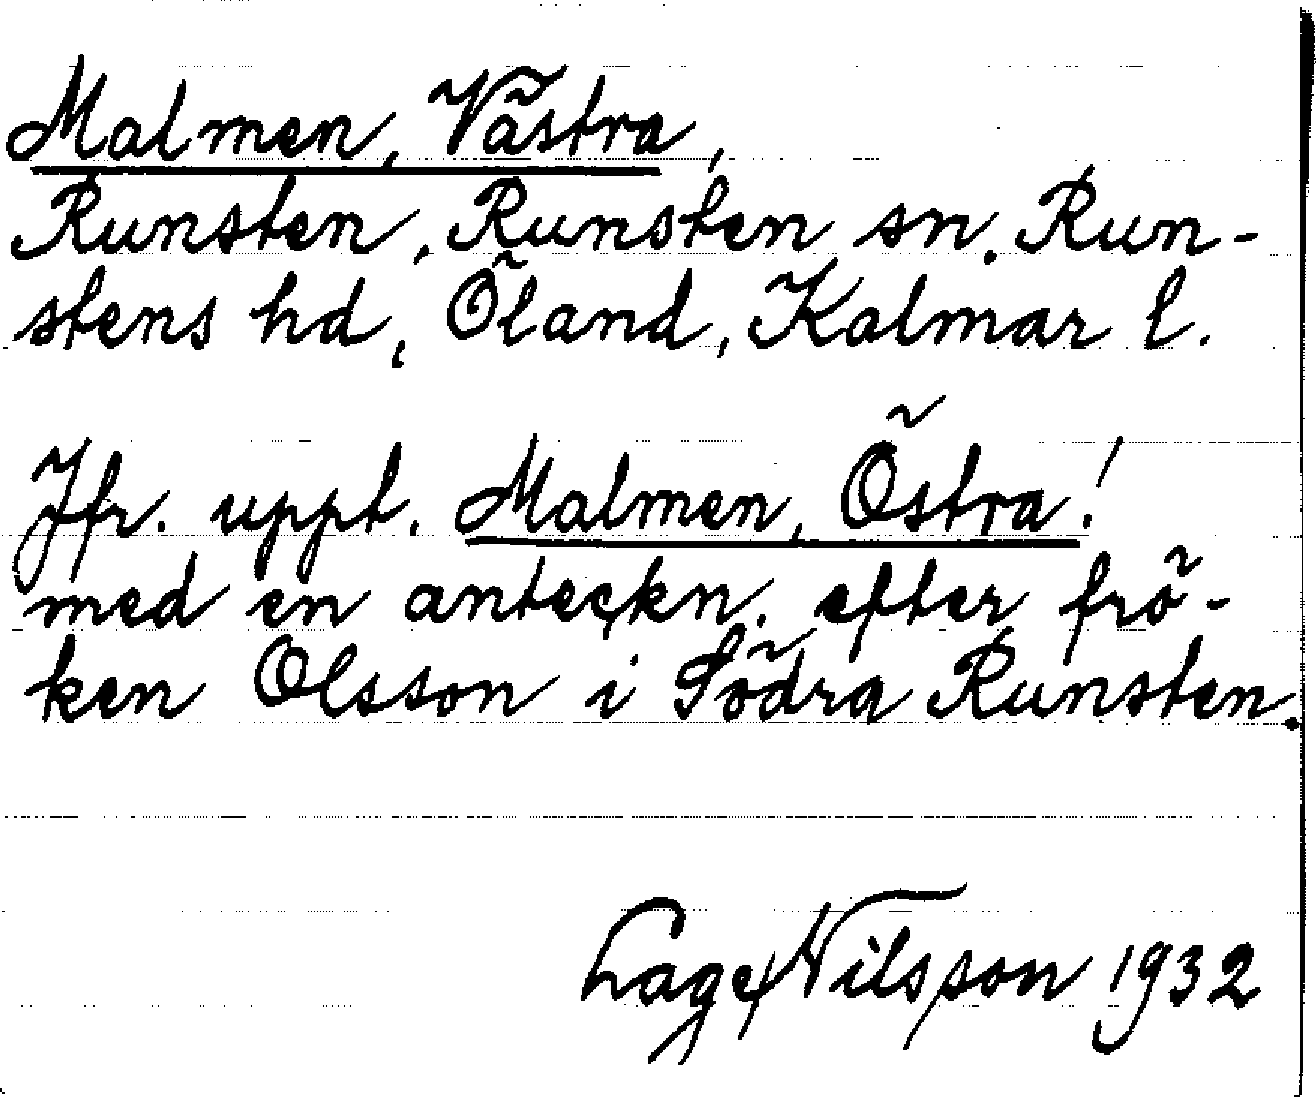 Malmen, Västra,
Runsten, Runsten sn. Run-
stens hd, Öland, Kalmar l.
Jfr. uppt. Malmen, Östra!
med en anteckn. efter frö-
ken Olsson i Södra Runsten.
Lage Nilsson 1932